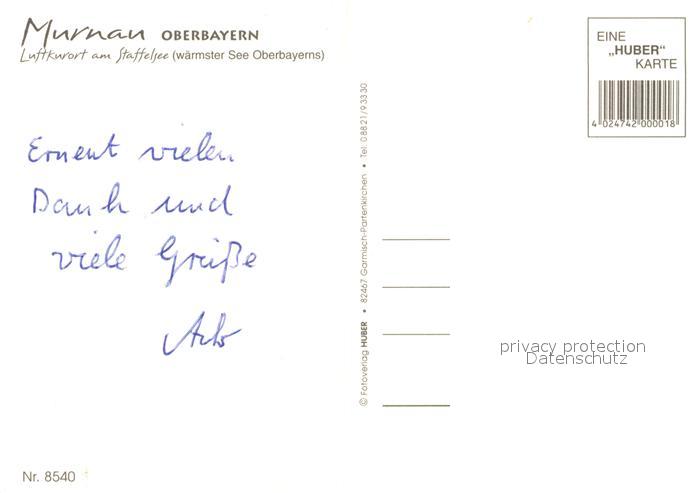 Murnau OBERBAYERN
Luftkurort am Staffelsee (wärmster See Oberbayerns)
EINE
„HUBER"
KARTE
4 024742 000018
Erneut vielen
Dank und
viele Grüße
© Fotoverlag HUBER • 82467 Garmisch-Partenkirchen • Tel. 0 88 21/9 33 30
privacy protection
Datenschutz
Nr. 8540